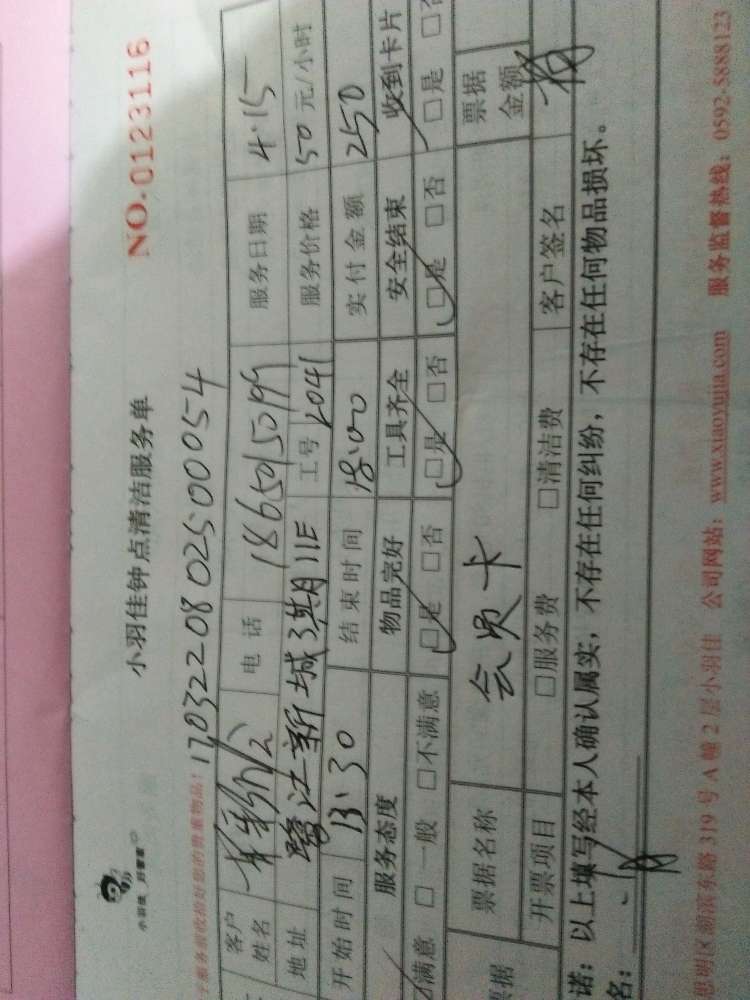 小羽佳 好管家
小羽佳钟点清洁服务单
NO.0123116
服务前收拾好您的贵重物品！17032208025000054
客户姓名 电话 18650150199 服务日期 4.15
地址 鹭江新城3期11E 工号 2041 服务价格 50元/小时
开始时间 13:30 结束时间 18:00 实付金额 250
服务态度 物品完好 工具齐全 安全结束 收到卡片
满意 □一般 □不满意 □是 □否 □是 □否 □是 □否 □是
票据名称 会员卡 票据金额
开票项目 □服务费 □清洁费 客户签名
诺：以上填写经本人确认属实，不存在任何纠纷，不存在任何物品损坏。
名：
思明区湖滨东路319号A幢2层小羽佳 公司网站：www.xiaoyujia.com 服务监督热线：0592-5888123